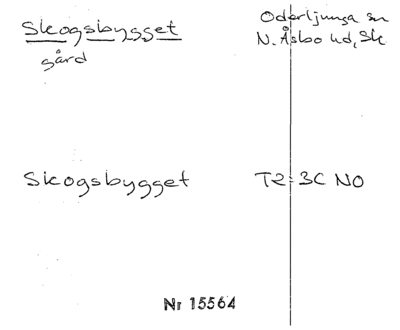 Skogsbygget
gård
Oderljunga sn
N. Åsbo hd, Sk
Skogsbygget
T2:3C NO
Nr 15564